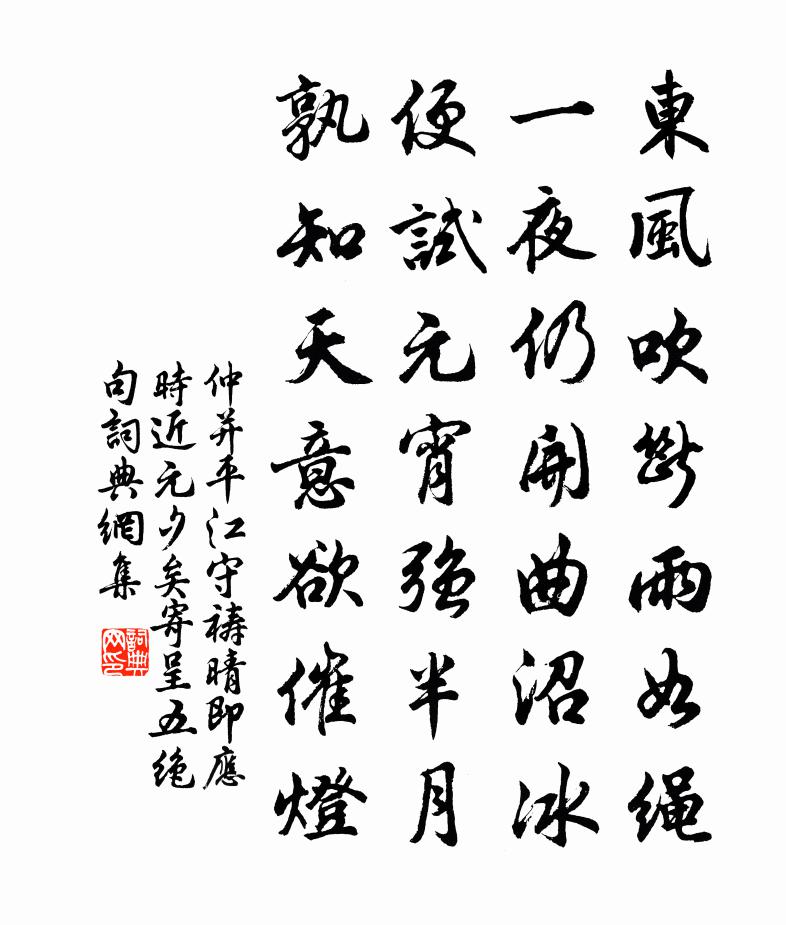 東風吹斷雨如繩
一夜仍開曲沼冰
便試元宵強半月
孰知天意欲催燈
仲并平江守禱晴即應
時近元夕矣寄呈五絕
句詞典網集
詞典网印